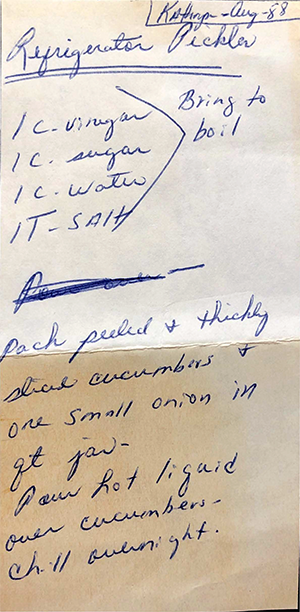 Kathryn - Aug - 88
Refrigerator Pickles
1 c. vinegar
1 c. sugar
1 c. water
1 T - SAlt
Bring to
boil
Pack peeled & thickly
slice cucumbers &
one small onion in
qt jar -
Pour hot liquid
over cucumbers -
chill overnight.